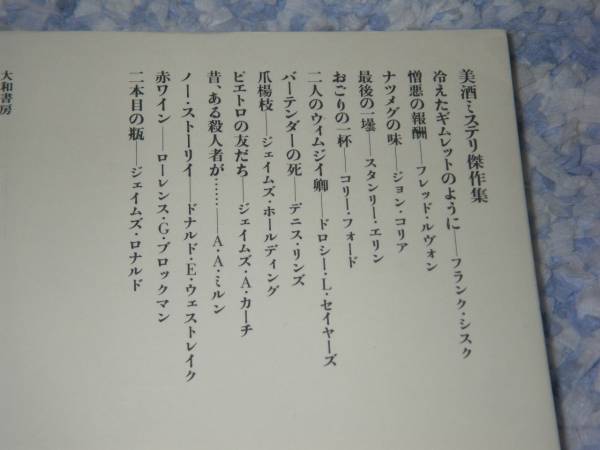 美酒ミステリ傑作集
冷えたギムレットのように――フランク・シスク
憎悪の報酬――フレッド・ルヴォン
ナツメグの味――ジョン・コリア
最後の一壜――スタンリー・エリン
おごりの一杯――コリー・フォード
二人のウィムジイ卿――ドロシー・L・セイヤーズ
バーテンダーの死――デニス・リンズ
爪楊枝――ジェイムズ・ホールディング
ピエトロの友だち――ジェイムズ・A・カーチ
昔、ある殺人者が………――A・A・ミルン
ノー・ストーリイ――ドナルド・E・ウェストレイク
赤ワイン――ローレンス・G・ブロックマン
二本目の瓶――ジェイムズ・ロナルド
大和書房